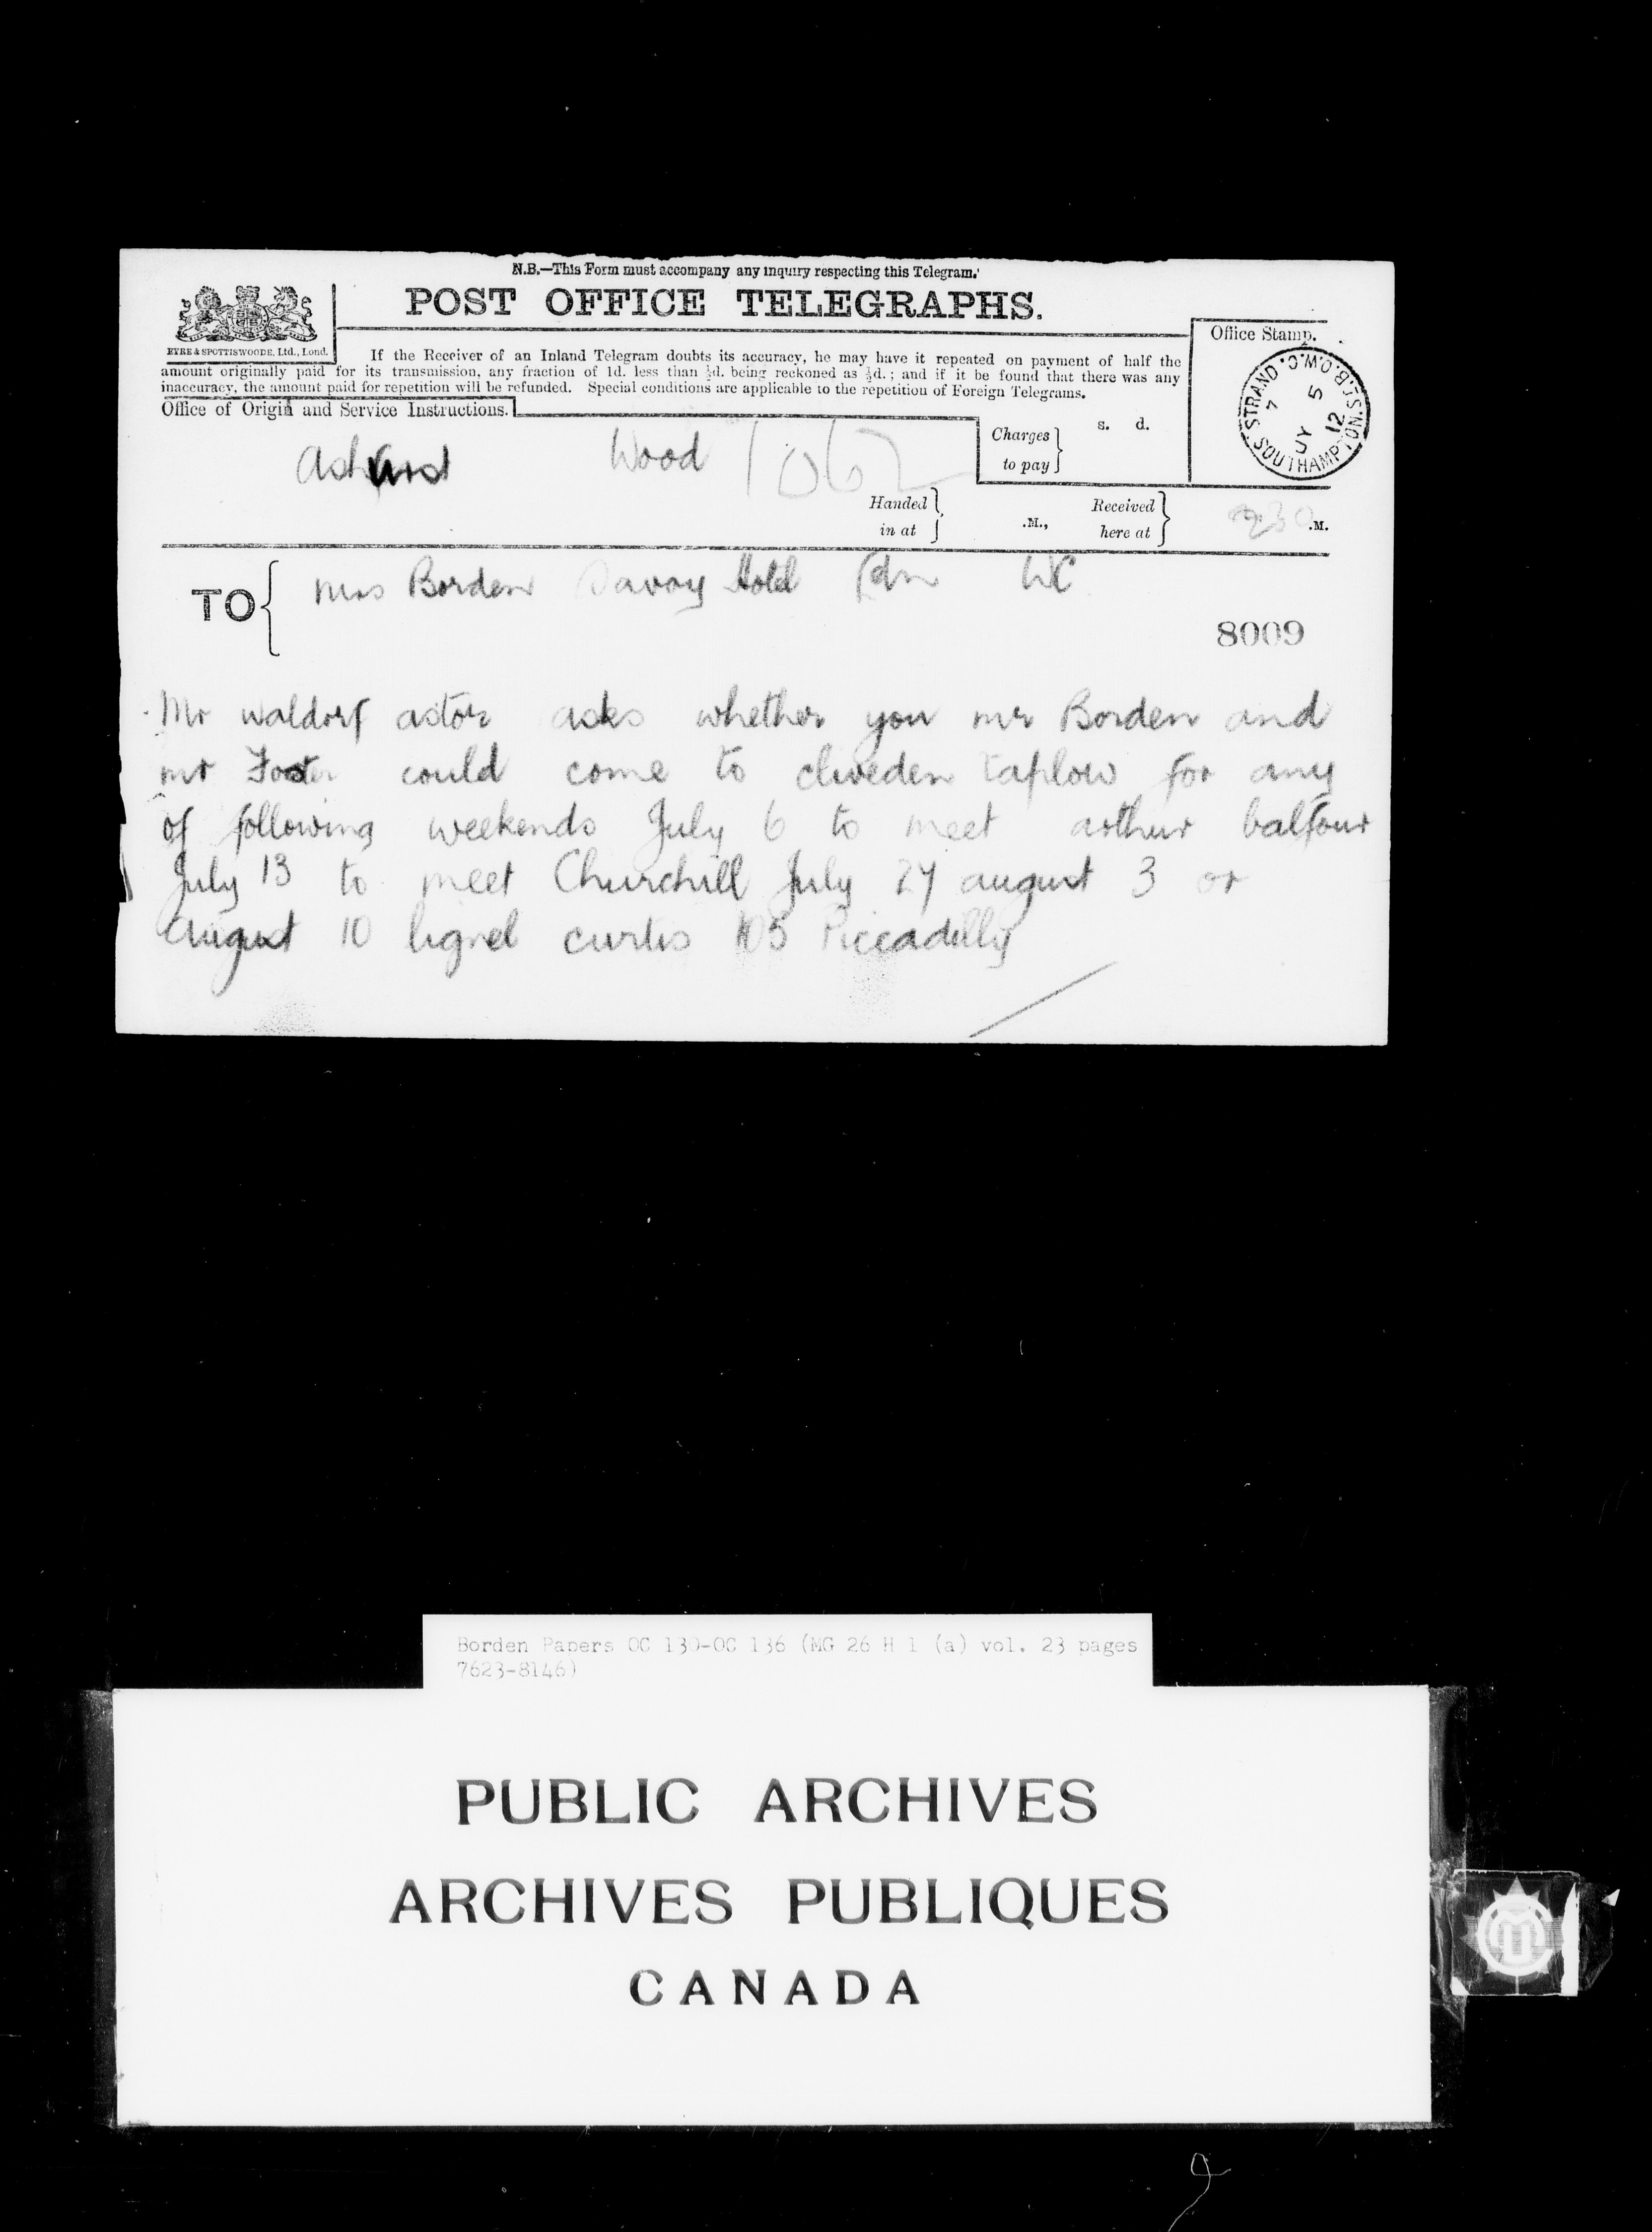 N.B.—This Form must accompany any inquiry respecting this Telegram.
POST OFFICE TELEGRAPHS.
EYRE & SPOTTISWOODE, Ltd., Lond.
If the Receiver of an Inland Telegram doubts its accuracy, he may have it repeated on payment of half the
amount originally paid for its transmission, any fraction of 1d. less than ½d. being reckoned as ½d.; and if it be found that there was any
inaccuracy, the amount paid for repetition will be refunded. Special conditions are applicable to the repetition of Foreign Telegrams.
Office of Origin and Service Instructions.
Office Stamp.
STRAND • SOUTHAMPTON.ST.B.O.W.C.
7
JY 5
12
Wood 1062
Charges to pay
s. d.
Handed in at
.M.,
Received here at
.M.
TO
Mrs Borden Savoy Hotel Ldn WC
8009
Mr waldorf astor asks whether you mr Borden and
mr Foster could come to cliveden taplow for any
of following weekends July 6 to meet arthur balfour
July 13 to meet Churchill July 27 august 3 or
august 10 lionel curtis 105 Piccadilly
Borden Papers OC 130-OC 136 (MG 26 H 1 (a) vol. 23 pages
7623-8146)
PUBLIC ARCHIVES
ARCHIVES PUBLIQUES
CANADA